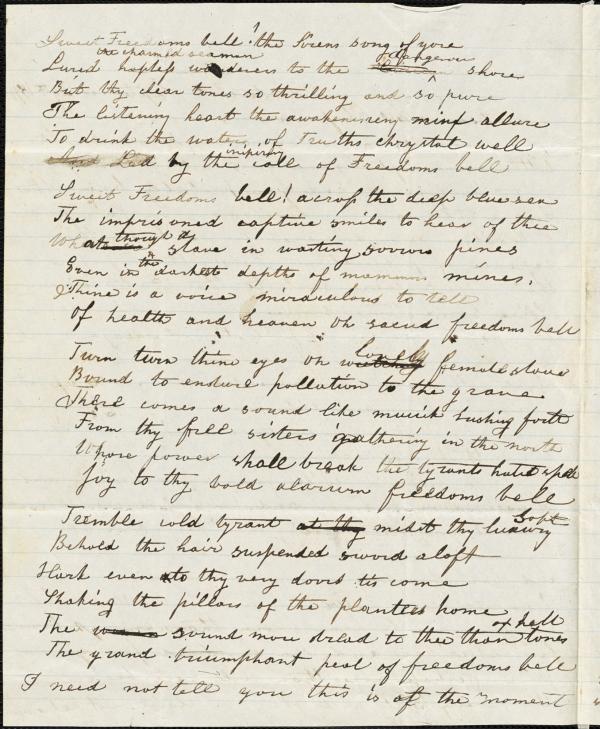 Sweet Freedoms bell! the Sirens song of yore
the charmed seaman
Lured hapless wanderers to the dangerous shore
But thy clear tones so thrilling and so pure
The listening heart the awakening mind allure
To drink the water of Truths chrystal well
And Led by the inspiring call of Freedoms bell

Sweet Freedoms bell! across the deep blue sea
The imprisoned captive smiles to hear of thee
What though the slave in wasting sorrow pines
Even in the darkest depths of mines.
Thine is a voice miraculous to tell
Of health and heaven oh sacred freedoms bell

Turn turn thine eyes oh lovely female slave
Bound to endure pollution to the grave
There comes a sound like musick bushing forth
From thy free sisters gathering in the north
Whose power shall break the tyrants hated spell
Joy to thy bold alarum freedoms bell

Tremble cold tyrant at thy midst thy soft luxury
Behold the hair suspended sword aloft
Hark even to thy very doors tis come
Shaking the pillars of the planters home
The sound more dread to thee than tones of hell
The grand triumphant peal of freedoms bell
I need not tell you this is of the moment